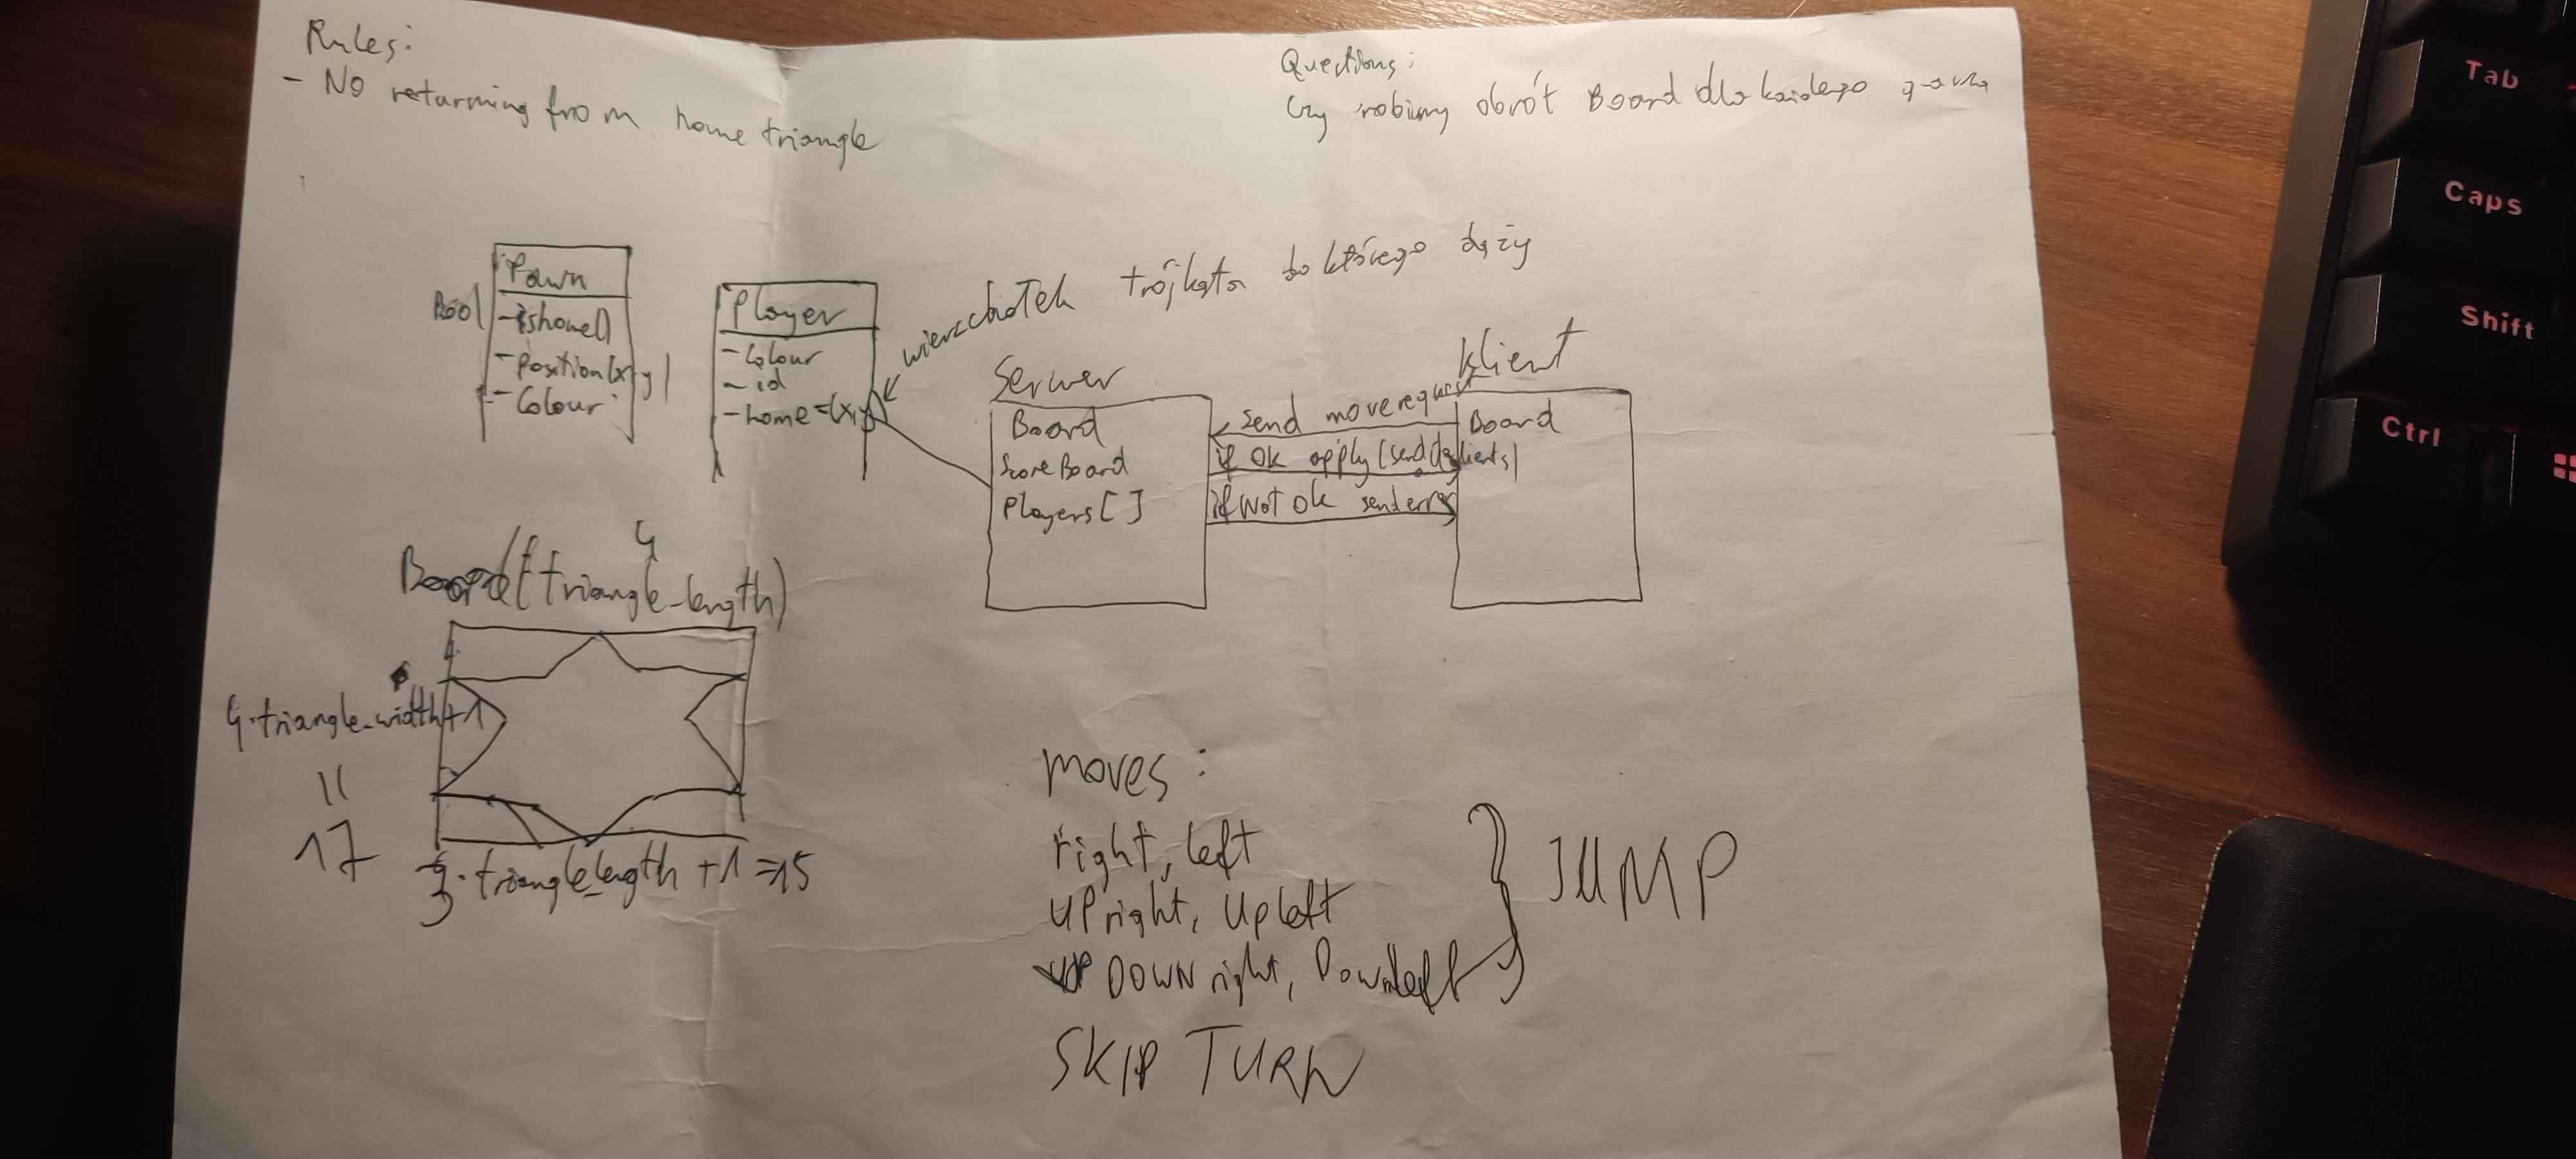 Rules:
- No returning from home triangle
Questions:
Czy robimy obrót Board dla każdego gracza
Pawn
Bool - ishome()
- Position(x,y)
- Colour
Player
- Colour
- id
- home=(x,y)
wierzchołek trójkąta do którego dąży
Serwer
Board
ScoreBoard
Players[]
Klient
Board
send move request
if OK apply (send to clients)
if Not ok send err
4
Board(triangle_length)
4·triangle_width+1
=
17
3·triangle_length +1 =15
moves:
right, left
UP right, Up left
DOWN right, Down left
JUMP
SKIP TURN
Tab
Caps
Shift
Ctrl